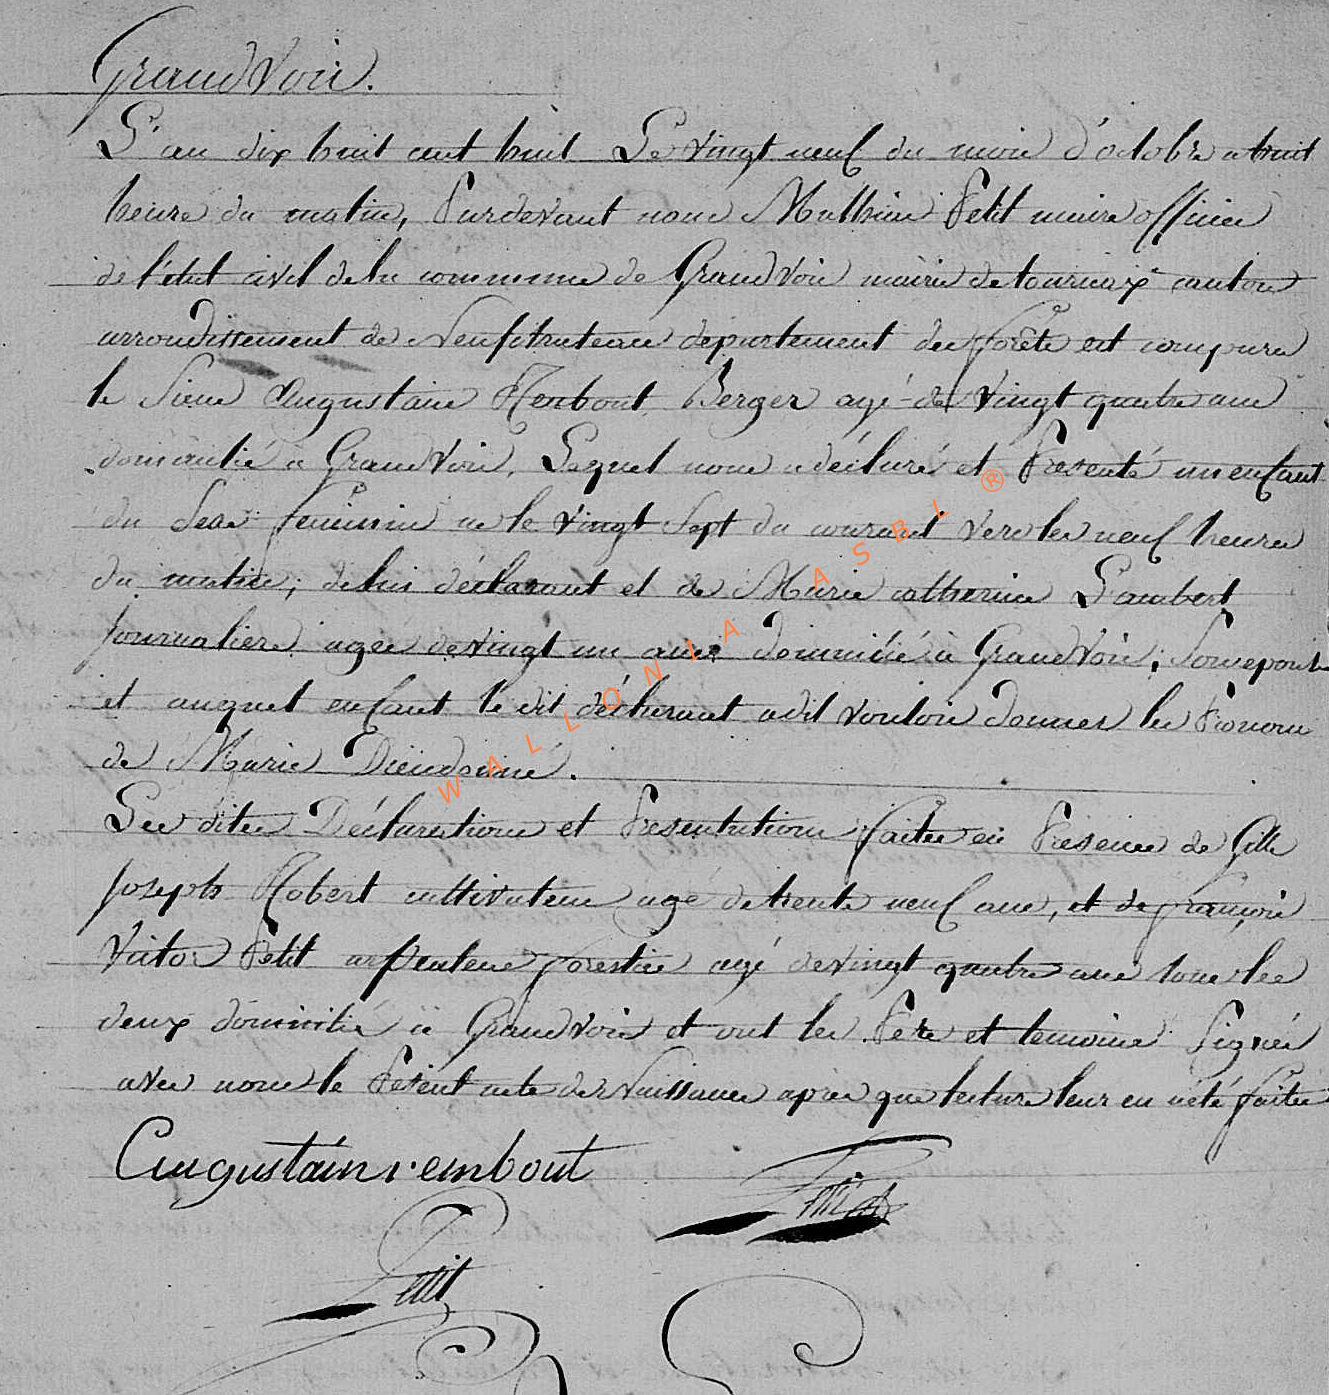 GrandVoir.
L'an dix huit cent huit Le vingt neuf du mois d'octobre a huit
heure du matin, Pardevant nous Mathieu Petit maire officier
de l'état civil de la commune de GrandVoir mairie de tournay canton
arrondissement de Neufchateau departement des forêts est comparu
le Sieur Augustain Renbout Berger agé de vingt quatre ans
domicilié a GrandVoir, Lequel nous a déclaré et Presenté un enfant
du Sexe feminin né le vingt Sept du courant vers les neuf heures
du matin; de lui déclarant et de Marie catherine Lambert
Journaliere agée de vingt un ans domicilié à GrandVoir,
et auquel enfant le dit déclarant a dit vouloir donner les Prenoms
de Marie Dieudonné.
Les dites Déclarations et Presentations faites en Présence de Gille
Joseph Robert cultivateur agé de trente neuf ans, et de françois
Victor Petit arpenteur forestier agé de vingt quatre ans tous les
deux domicilié à GrandVoir et ont les Père et temoins Signés
avec nous le Present acte de Naissance après que lecture leur en a été faite
Augustain rembout
Petit
WALLONIA ASBL ®